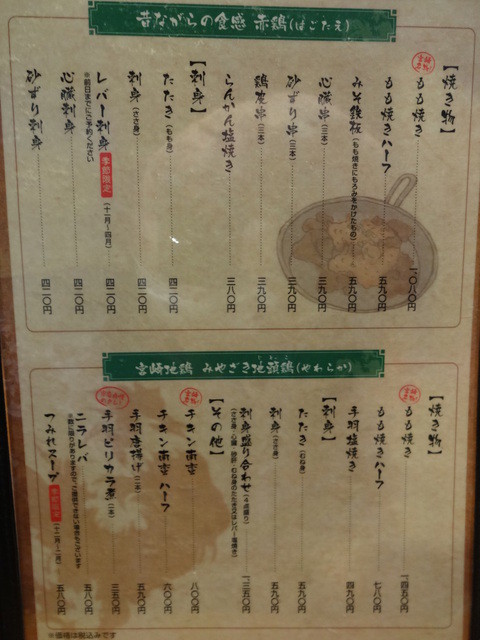 昔ながらの食感 赤鶏(はごたえ)
【焼き物】
もも焼き 一、〇八〇円
もも焼きハーフ 五九〇円
みそ鉄板(もも焼きにもろみをかけたもの) 五九〇円
心臓串(三本) 三九〇円
砂ずり串(三本) 三九〇円
鶏皮串(三本) 三九〇円
らんかん塩焼き 三八〇円
【刺身】
たたき(もも身) 四二〇円
刺身(ささ身) 四二〇円
レバー刺身 季節限定(十一月〜四月) 四二〇円
※前日までにご予約ください
心臓刺身 四二〇円
砂ずり刺身 四二〇円
宮崎地鶏 みやざき地頭鶏(やわらか)
【焼き物】
もも焼き 一、四五〇円
もも焼きハーフ 七八〇円
手羽塩焼き 四九〇円
【刺身】
たたき(むね身) 五九〇円
刺身(ささ身) 五九〇円
刺身盛り合わせ(4点盛り) 一、三五〇円
【その他】
チキン南蛮 八〇〇円
チキン南蛮 ハーフ 六〇〇円
手羽唐揚げ(二本) 五九〇円
手羽ピリカラ煮(二本) 三五〇円
ニラレバ 五八〇円
つみれスープ 季節限定(十二月〜二月) 五八〇円